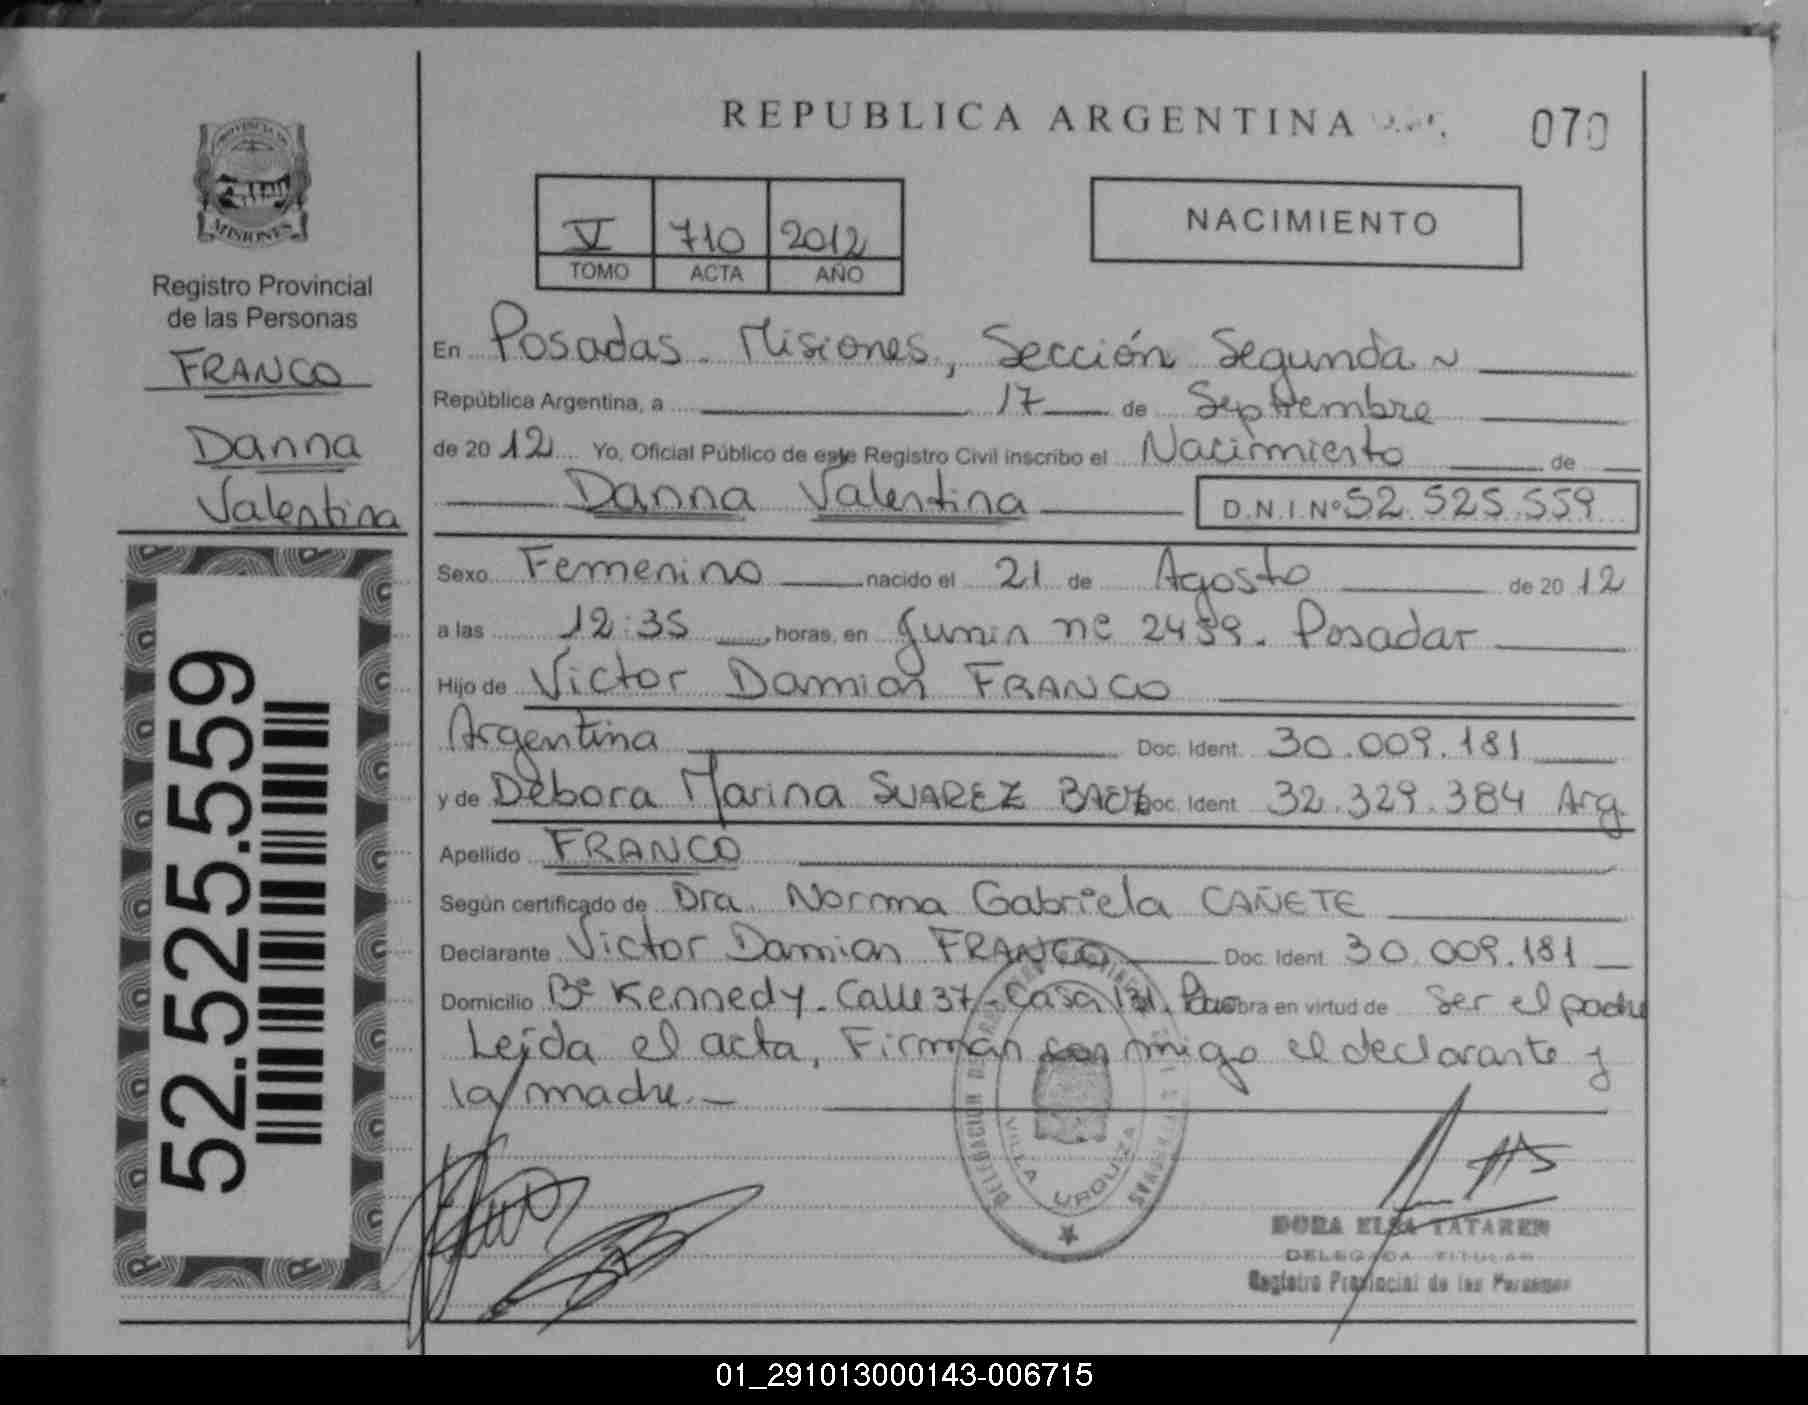 REPUBLICA ARGENTINA
070
PROVINCIA DE
MISIONES
Registro Provincial
de las Personas
FRANCO
Danna
Valentina
52.525.559
V 710 2012
TOMO ACTA AÑO
NACIMIENTO
En Posadas. Misiones, Sección Segunda
República Argentina, a 17 de Septiembre
de 2012 Yo, Oficial Público de este Registro Civil inscribo el Nacimiento de
Danna Valentina D.N.I.Nº 52.525.559
Sexo Femenino nacido el 21 de Agosto de 2012
a las 12:35 horas, en Junin nº 2459. Posadas
Hijo de Victor Damian FRANCO
Argentina Doc. Ident. 30.009.181
y de Débora Marina SUAREZ BAEZ Doc. Ident. 32.329.384 Arg.
Apellido FRANCO
Según certificado de Dra. Norma Gabriela CAÑETE
Declarante Victor Damian FRANCO Doc. Ident. 30.009.181
Domicilio Bº Kennedy. Calle 37 - Casa 131. obra en virtud de Ser el padre
Leída el acta, Firman conmigo el declarante y
la madre.—
DELEGACION
VILLA URQUIZA
DORA ELSA TATAREN
DELEGADA TITULAR
Registro Provincial de las Personas
01_291013000143-006715